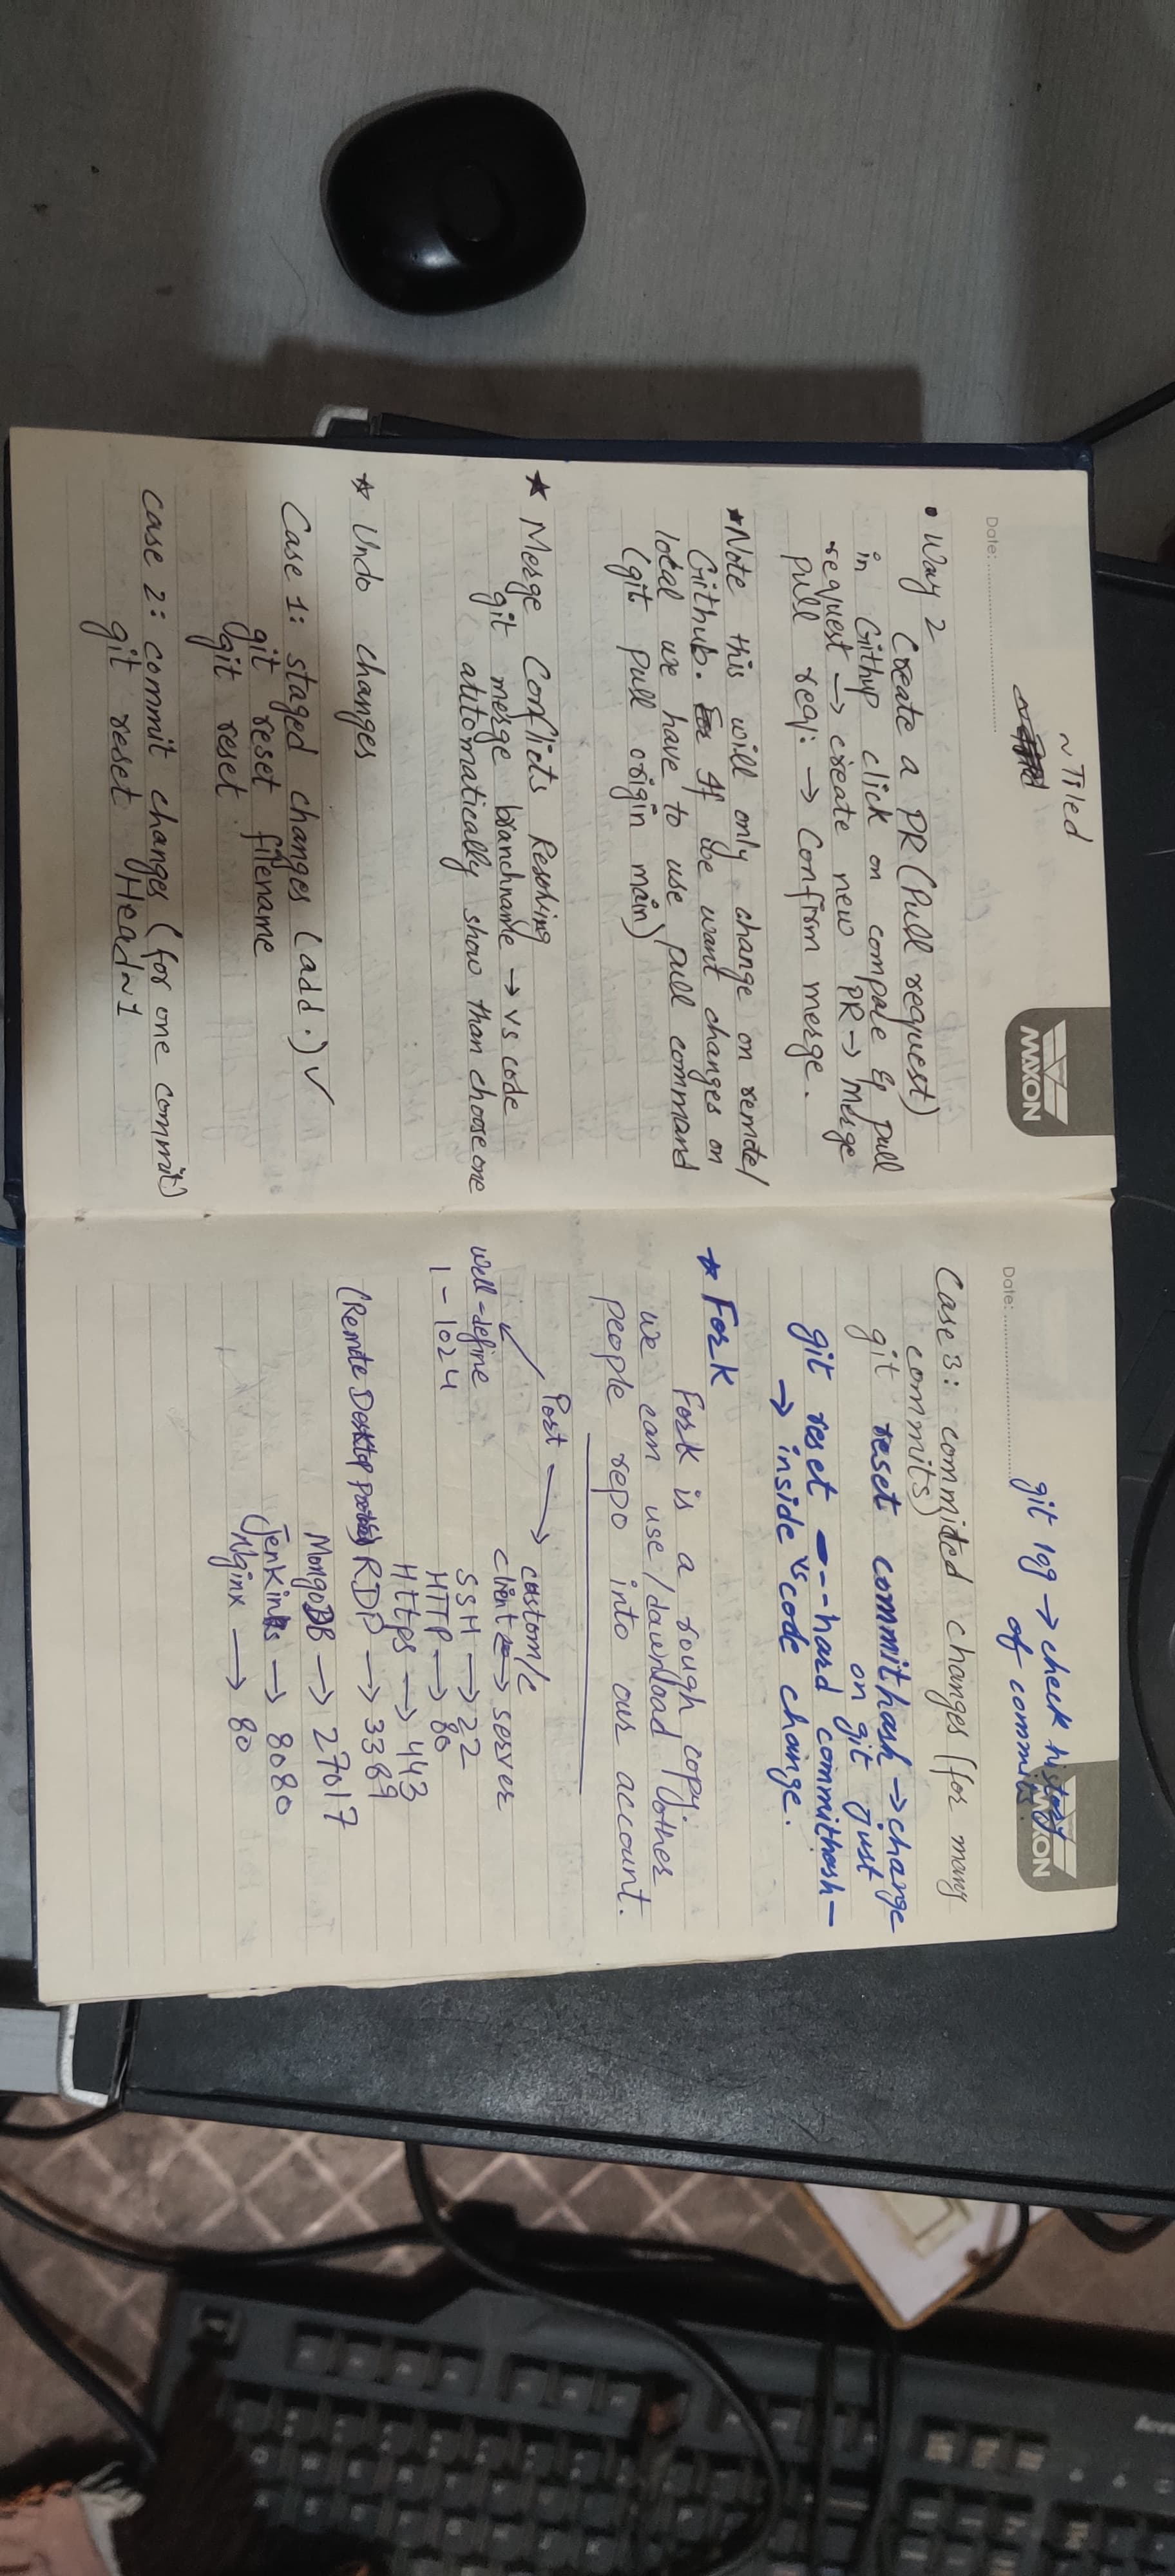 ~Tiled
MAXON
Date:
• Way 2
Create a PR (Pull request)
in Githup click on compale & pull
request → create new PR → merge
pull req: → Confirm merge.
*Note this will only change on remote/
Github. If we want changes on
local we have to use pull command
(git pull origin main)
★ Merge Conflicts Resolving
git merge branchname → vs code
atitomatically show than choose one
* Undo changes
Case 1: staged changes (add .) ✓
git reset filename
git reset
Case 2: commit changes (for one commit)
git reset Head~1
git log → check history
of commits.
MAXON
Date:
Case 3: commited changes (for many
commits)
git reset commithash → change
on git just
git reset --hard commithash —
→ inside vs code change.
* Fork
Fork is a rough copy.
we can use/dawnload other
people repo into our account.
Port → custom/e
well-define
1 - 1024
client → server
SSH → 22
HTTP → 80
Https → 443
(Remote Desktop protocol) RDP → 3389
MongoDB → 27017
Jenkins → 8080
Nginx → 80